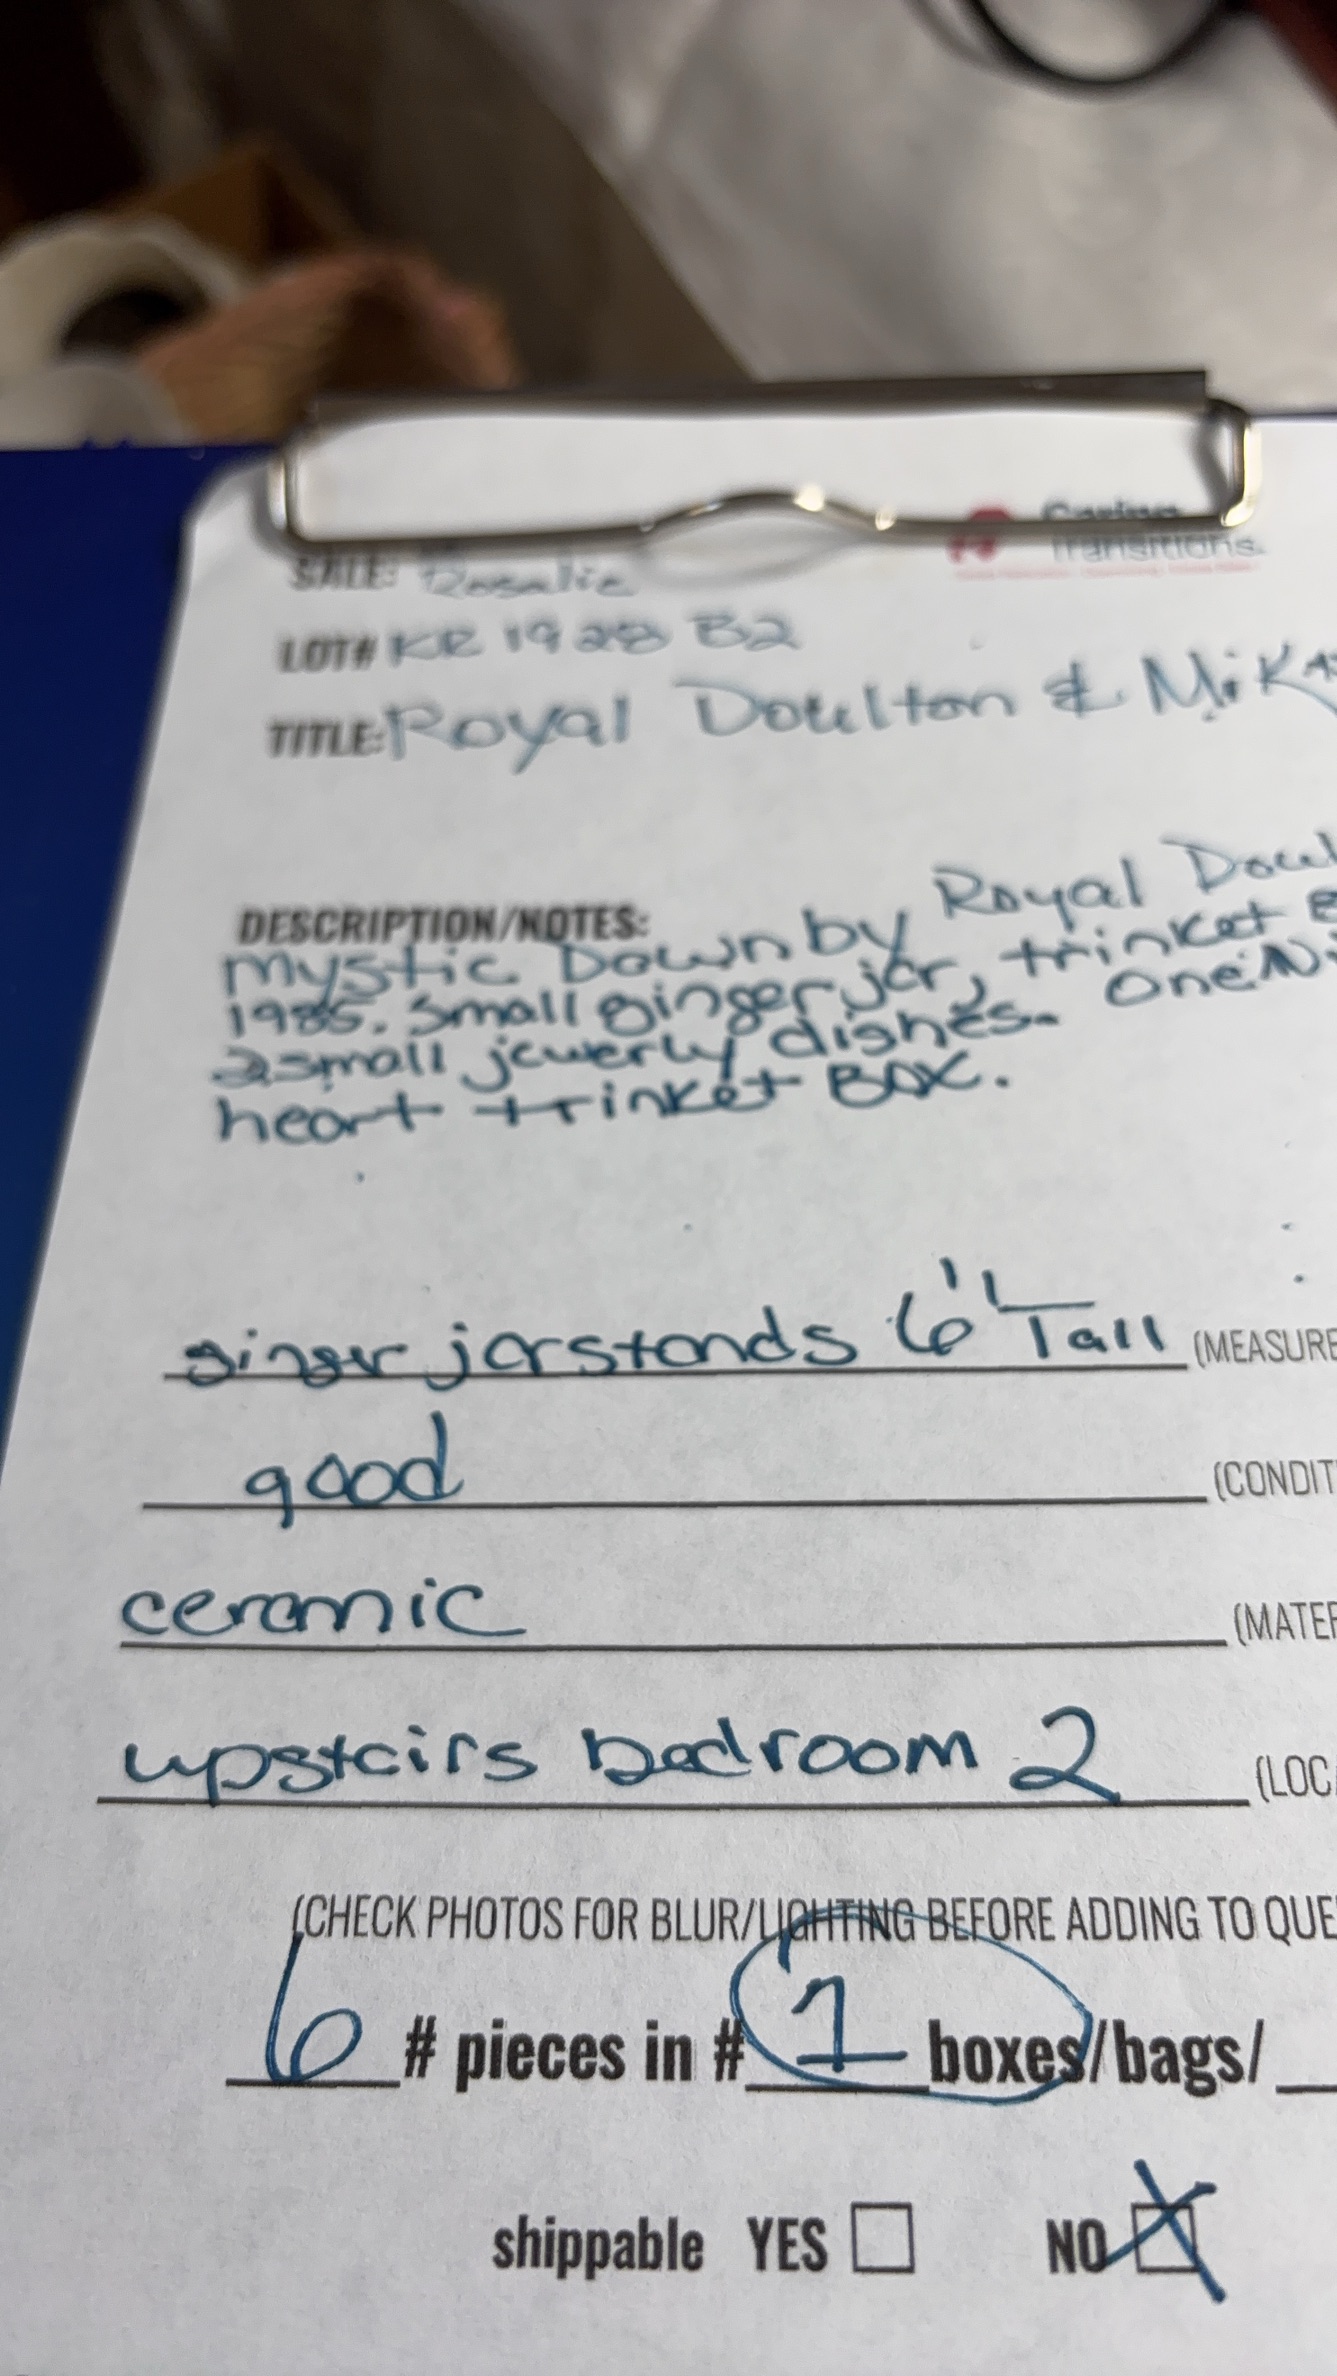 Caring
Transitions
SALE: Rosalie
LOT# KR 1928 B2
TITLE: Royal Doulton & Mikas
DESCRIPTION/NOTES:
mystic Dawn by Royal Doul
1985. Small ginger jar, trinket B
2 small jewerly dishes. One Mi
heart trinket BOX.
ginger jar stands 6" Tall (MEASURE
good (CONDIT
ceramic (MATER
upstairs bedroom 2 (LOCA
(CHECK PHOTOS FOR BLUR/LIGHTING BEFORE ADDING TO QUE
6 # pieces in # 1 boxes/bags/
shippable YES NO X